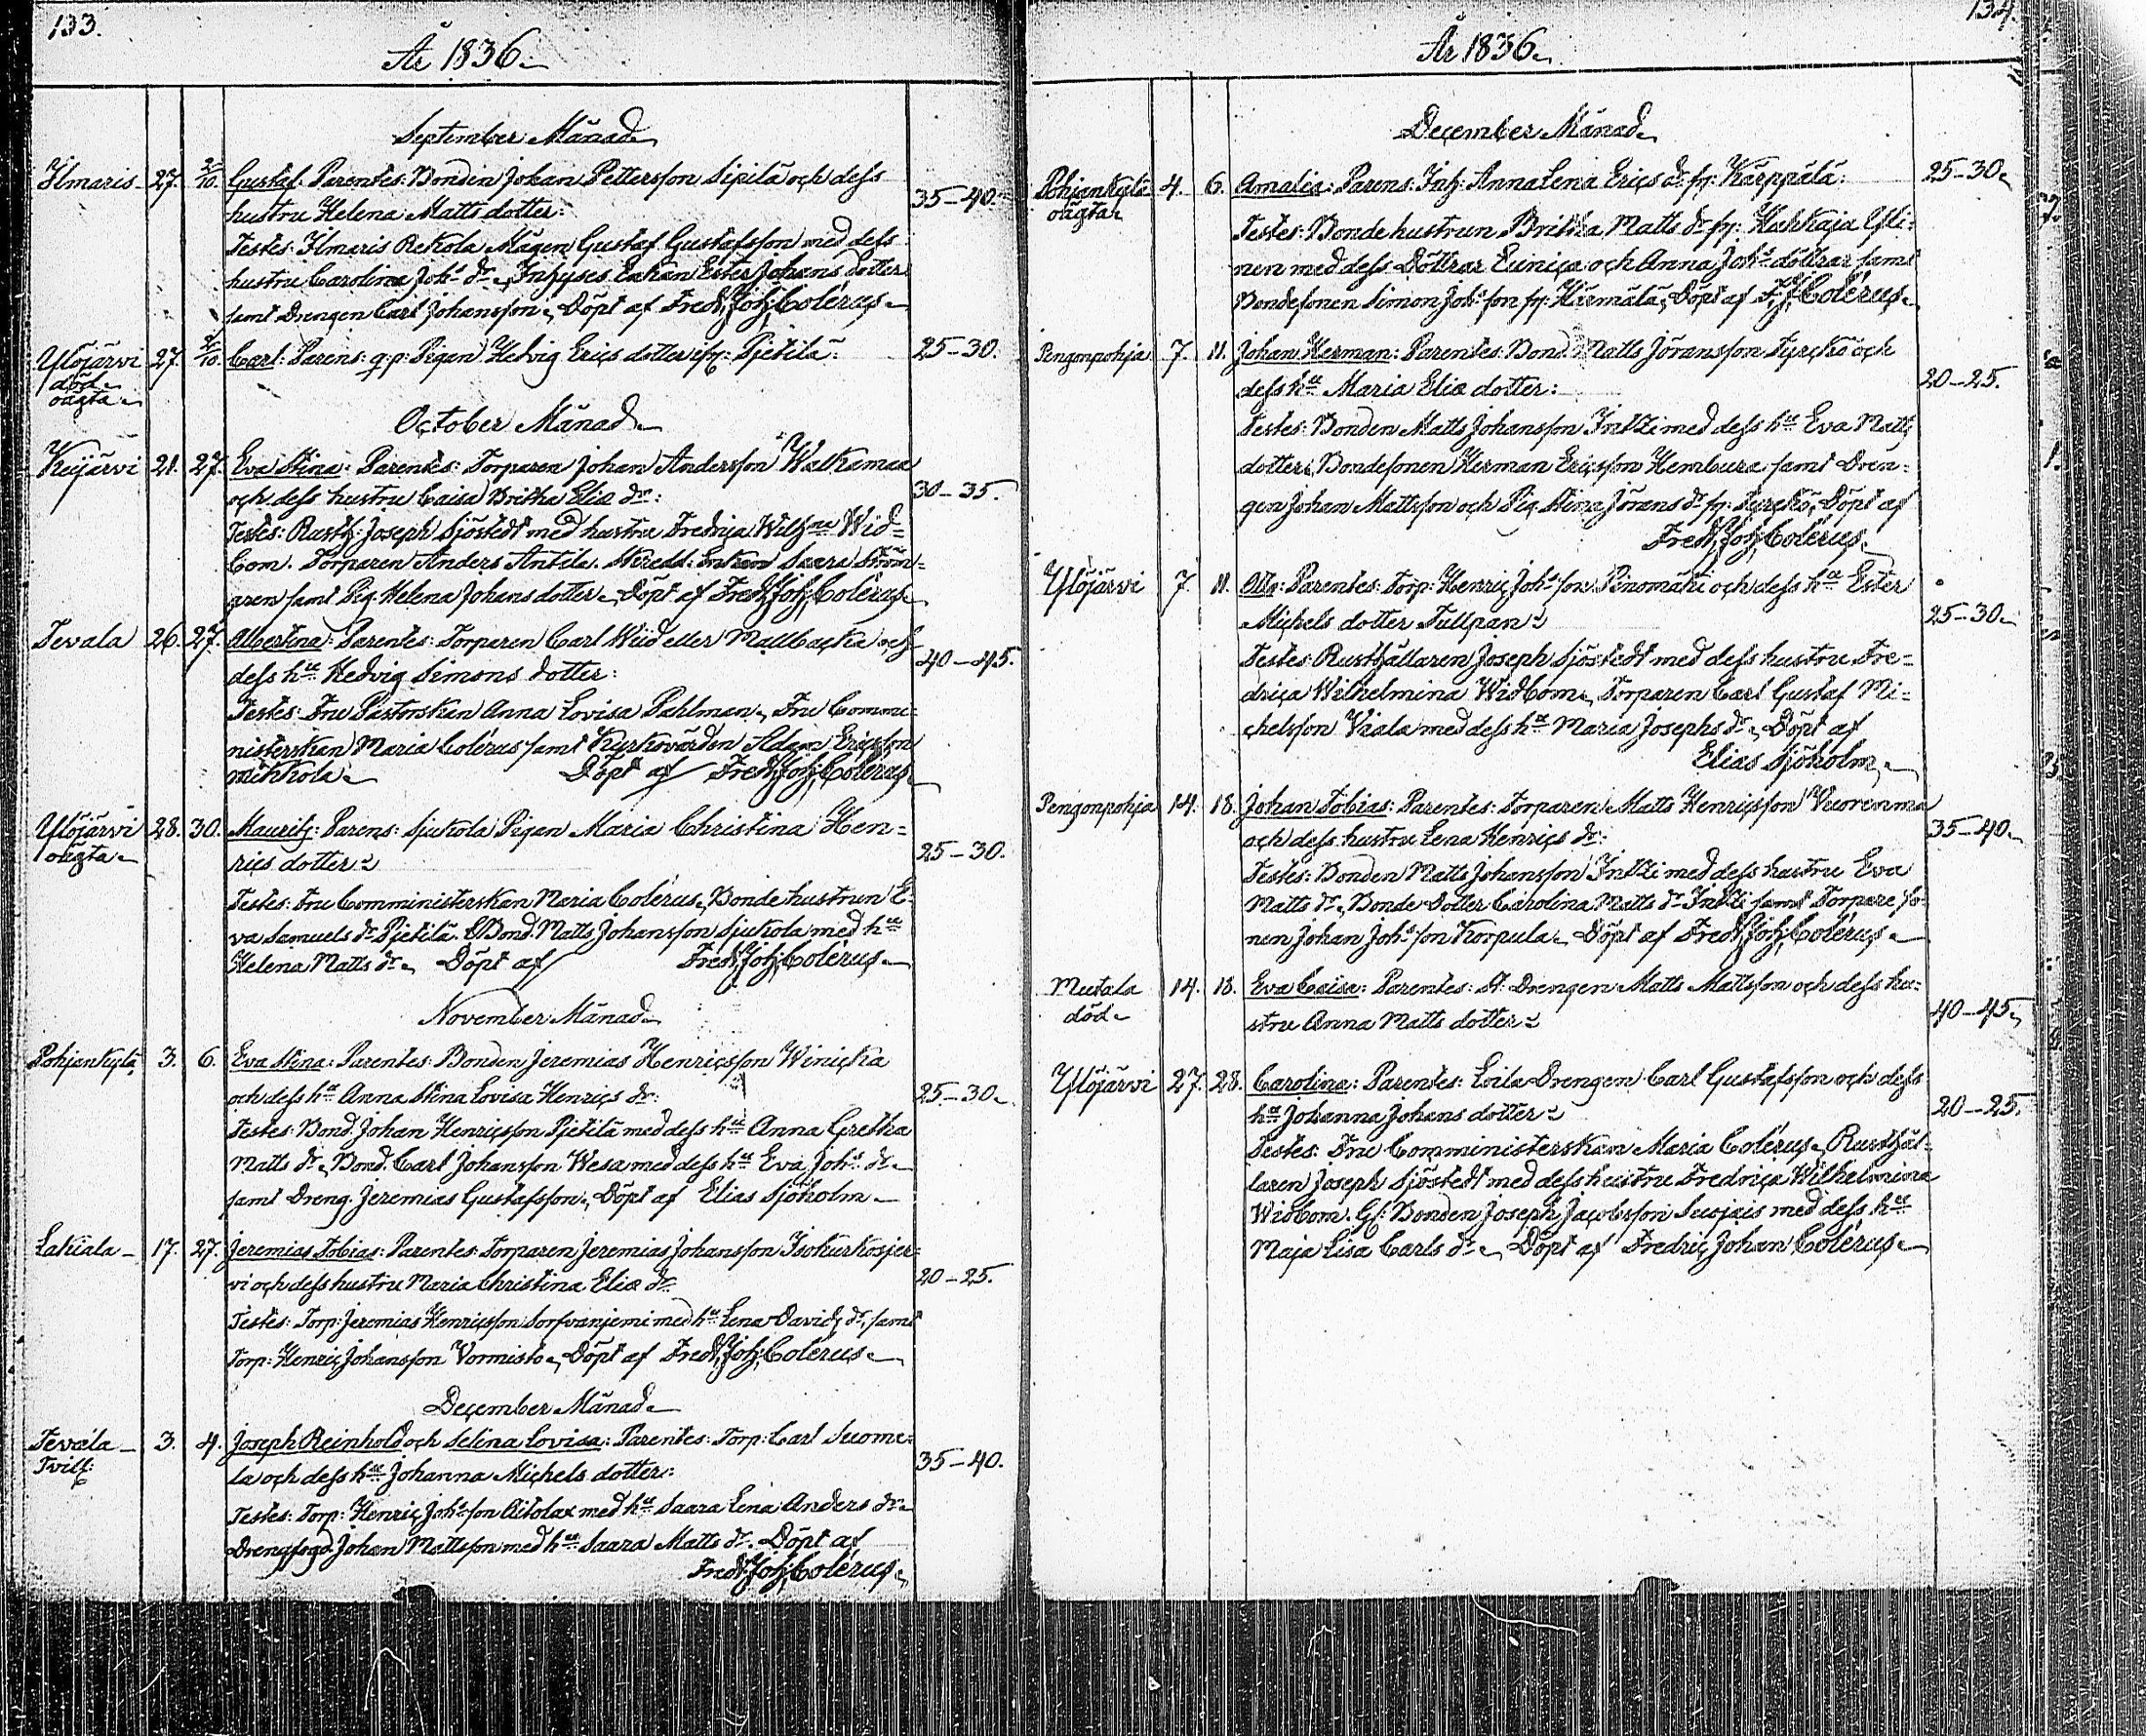 133.
År 1836.
September Månad.
Ilmaris 27. 2/10. Gustaf. Parentes: Bonden Johan Pettersson Sipilä och dess
hustru Helena Matts dotter: 35–40.
Testes: Ilmaris Rekola Mågen Gustaf Gustafsson med dess
hustru Carolina Joh.s dr., Inhyses Enkan Ester Johans dotter
samt Drengen Carl Johansson. Döpt af Fredr. Joh. Colérus.
Ylöjärvi 27. 2/10. Carl: Parens: q: p: Pigan Hedvig Erics dotter fr: Pjetilä: 25–30.
död.
oägta.
October Månad.
Keijärvi 21. 27. Eva Stina: Parentes: Torparen Johan Andersson Walkamaa
och dess hustru Caisa Britha Eliæ dr: 30–35.
Testes: Rusth: Joseph Sjöstedt med hustru Fredrica Wilh:na Wid=
bom. Torparen Anders Antila. Skredd: Enkan Saara Ström=
gren samt Pig. Helena Johans dotter. Döpt af Fredr. Joh. Colérus.
Tevala 26. 27. Albertina: Parentes: Torparen Carl Wiid eller Mallbacka och
dess h:u Hedvig Simons dotter: 40–45.
Testes: Fru Pastorskan Anna Lovisa Pahlman, Fru Commi=
nisterskan Maria Colérus samt Kyrkovärden Adam Ericsson
Mikkola. Döpt af Fredr. Joh. Colérus.
Ylöjärvi 28. 30. Mauritz: Parens: Sjukola Pigan Maria Christina Hen=
oägta. rics dotter: 25–30.
Testes: Fru Comministerskan Maria Colérus, Bonde hustrun E=
va Samuels dr Pjetilä. Bond. Matts Johansson Sjukola med h:u
Helena Matts dr. Döpt af Fredr. Joh. Colérus.
November Månad.
Pohjankylä 3. 6. Eva Stina: Parentes: Bonden Jeremias Henricsson Winicka
och dess h:u Anna Stina Lovisa Henrics dr: 25–30.
Testes: Bond. Johan Henricsson Pjetilä med dess h:u Anna Gretha
Matts dr., Bond. Carl Johansson Wesa med dess h:u Eva Joh:s dr.
samt Dreng. Jeremias Gustafsson. Döpt af Elias Sjöholm.
Lakiala 17. 27. Jeremias Tobias: Parentes: Torparen Jeremias Johansson Isokurkosjer=
vi och dess hustru Maria Christina Eliæ dr. 20–25.
Testes: Torp: Jeremias Henricsson Sorfvanjemi med h:u Lena Davids dr, samt
Torp: Henric Johansson Vormisto. Döpt af Fredr. Joh. Colérus.
December Månad.
Tevala 3. 4. Joseph Reinhold och Selina Lovisa: Parentes: Torp: Carl Suome=
Tvill: la och dess h:u Johanna Michels dotter: 35–40.
Testes: Torp: Henric Joh:s son Aitolax med h:u Saara Lena Anders dr.
Drengfogd. Johan Mattsson med h:u Saara Matts dr. Döpt af
Fredr. Joh. Colérus.
134.
År 1836.
December Månad.
Pohjankylä 4. 6. Amalia: Parens: Inh: Anna Lena Erics dr. fr: Kärppälä: 25–30.
oägta.
Testes: Bondehustrun Britha Matts dr fr: Hakkaja Yli=
nen med dess Döttrar Eunica och Anna Joh:s döttrar samt
Bondesonen Simon Joh:s son fr: Härmälä, Döpt af F. J. Colérus.
Pengonpohja 7. 11. Johan Herman: Parentes: Bond. Matts Jöransson Tyrckö och
dess h:u Maria Eliæ dotter: 20–25.
Testes: Bonden Matts Johansson Intti med dess h:u Eva Matts
dotter, Bondesonen Herman Ericsson Hembura samt Dren=
gen Johan Mattsson och Pig. Stina Jörans dr fr: Tyrckö, Döpt af
Fredr. Joh. Colérus.
Ylöjärvi 7. 11. Otto: Parentes: Torp: Henric Joh:s son Pinomäki och dess h:u Ester
Michels dotter Tullpan: 25–30.
Testes: Rusthållaren Joseph Sjöstedt med dess hustru Fre=
drica Wilhelmina Widbom, Torparen Carl Gustaf Mi=
chelsson Viala med dess h:u Maria Josephs dr. Döpt af
Elias Sjöholm.
Pengonpohja 14. 18. Johan Tobias: Parentes: Torparen Matts Henricsson Vuorenma
och dess hustru Lena Henrics dr: 35–40.
Testes: Bonden Matts Johansson Intti med dess hustru Eva
Matts dr., Bonde dotter Carolina Matts dr Intti samt Torpare so=
nen Johan Joh:s son Korpula. Döpt af Fredr. Joh. Colérus.
Mutala 14. 18. Eva Caisa: Parentes: St: Drengen Matts Mattsson och dess hu=
död. stru Anna Matts dotter: 40–45.
Ylöjärvi 27. 28. Carolina: Parentes: Loila Drengen Carl Gustafsson och dess
h:u Johanna Johans dotter: 20–25.
Testes: Fru Comministerskan Maria Colérus, Rusthål=
laren Joseph Sjöstedt med dess hustru Fredrica Wilhelmina
Widbom. Gl: Bonden Joseph Jacobsson Suojais med dess h:u
Maja Lisa Carls dr. Döpt af Fredric Johan Colérus.